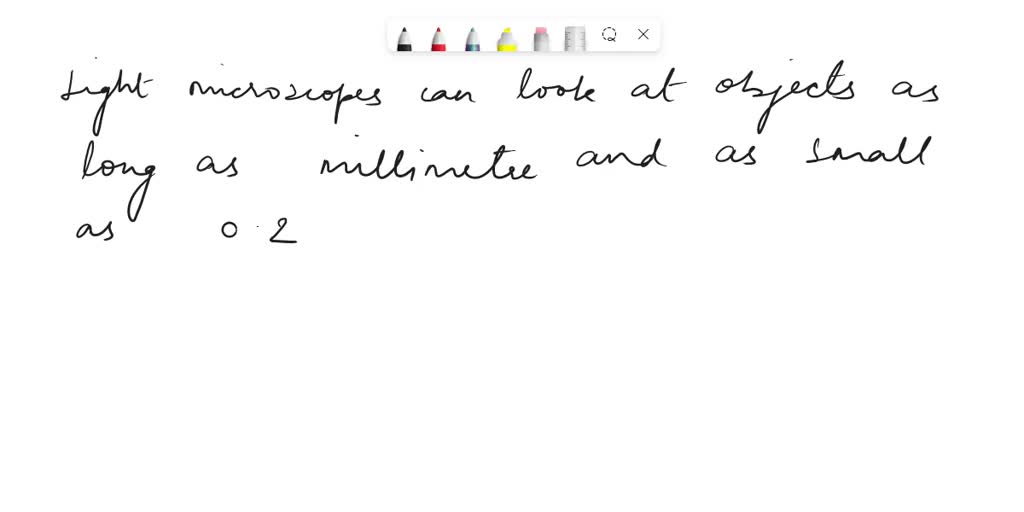 Light microscopes can look at objects as
long as millimetre and as small
as 0.2